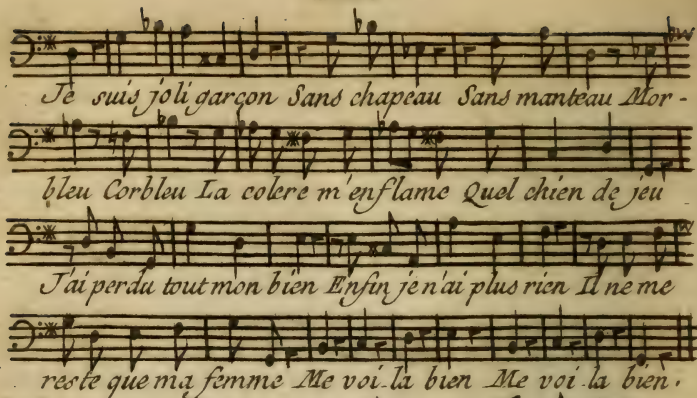 Je suis joli garçon Sans chapeau Sans manteau Mor-
bleu Corbleu La colere m'enflame Quel chien de jeu
J'ai perdu tout mon bien Enfin je n'ai plus rien Il ne me
reste que ma femme Me voi-la bien Me voi-la bien.